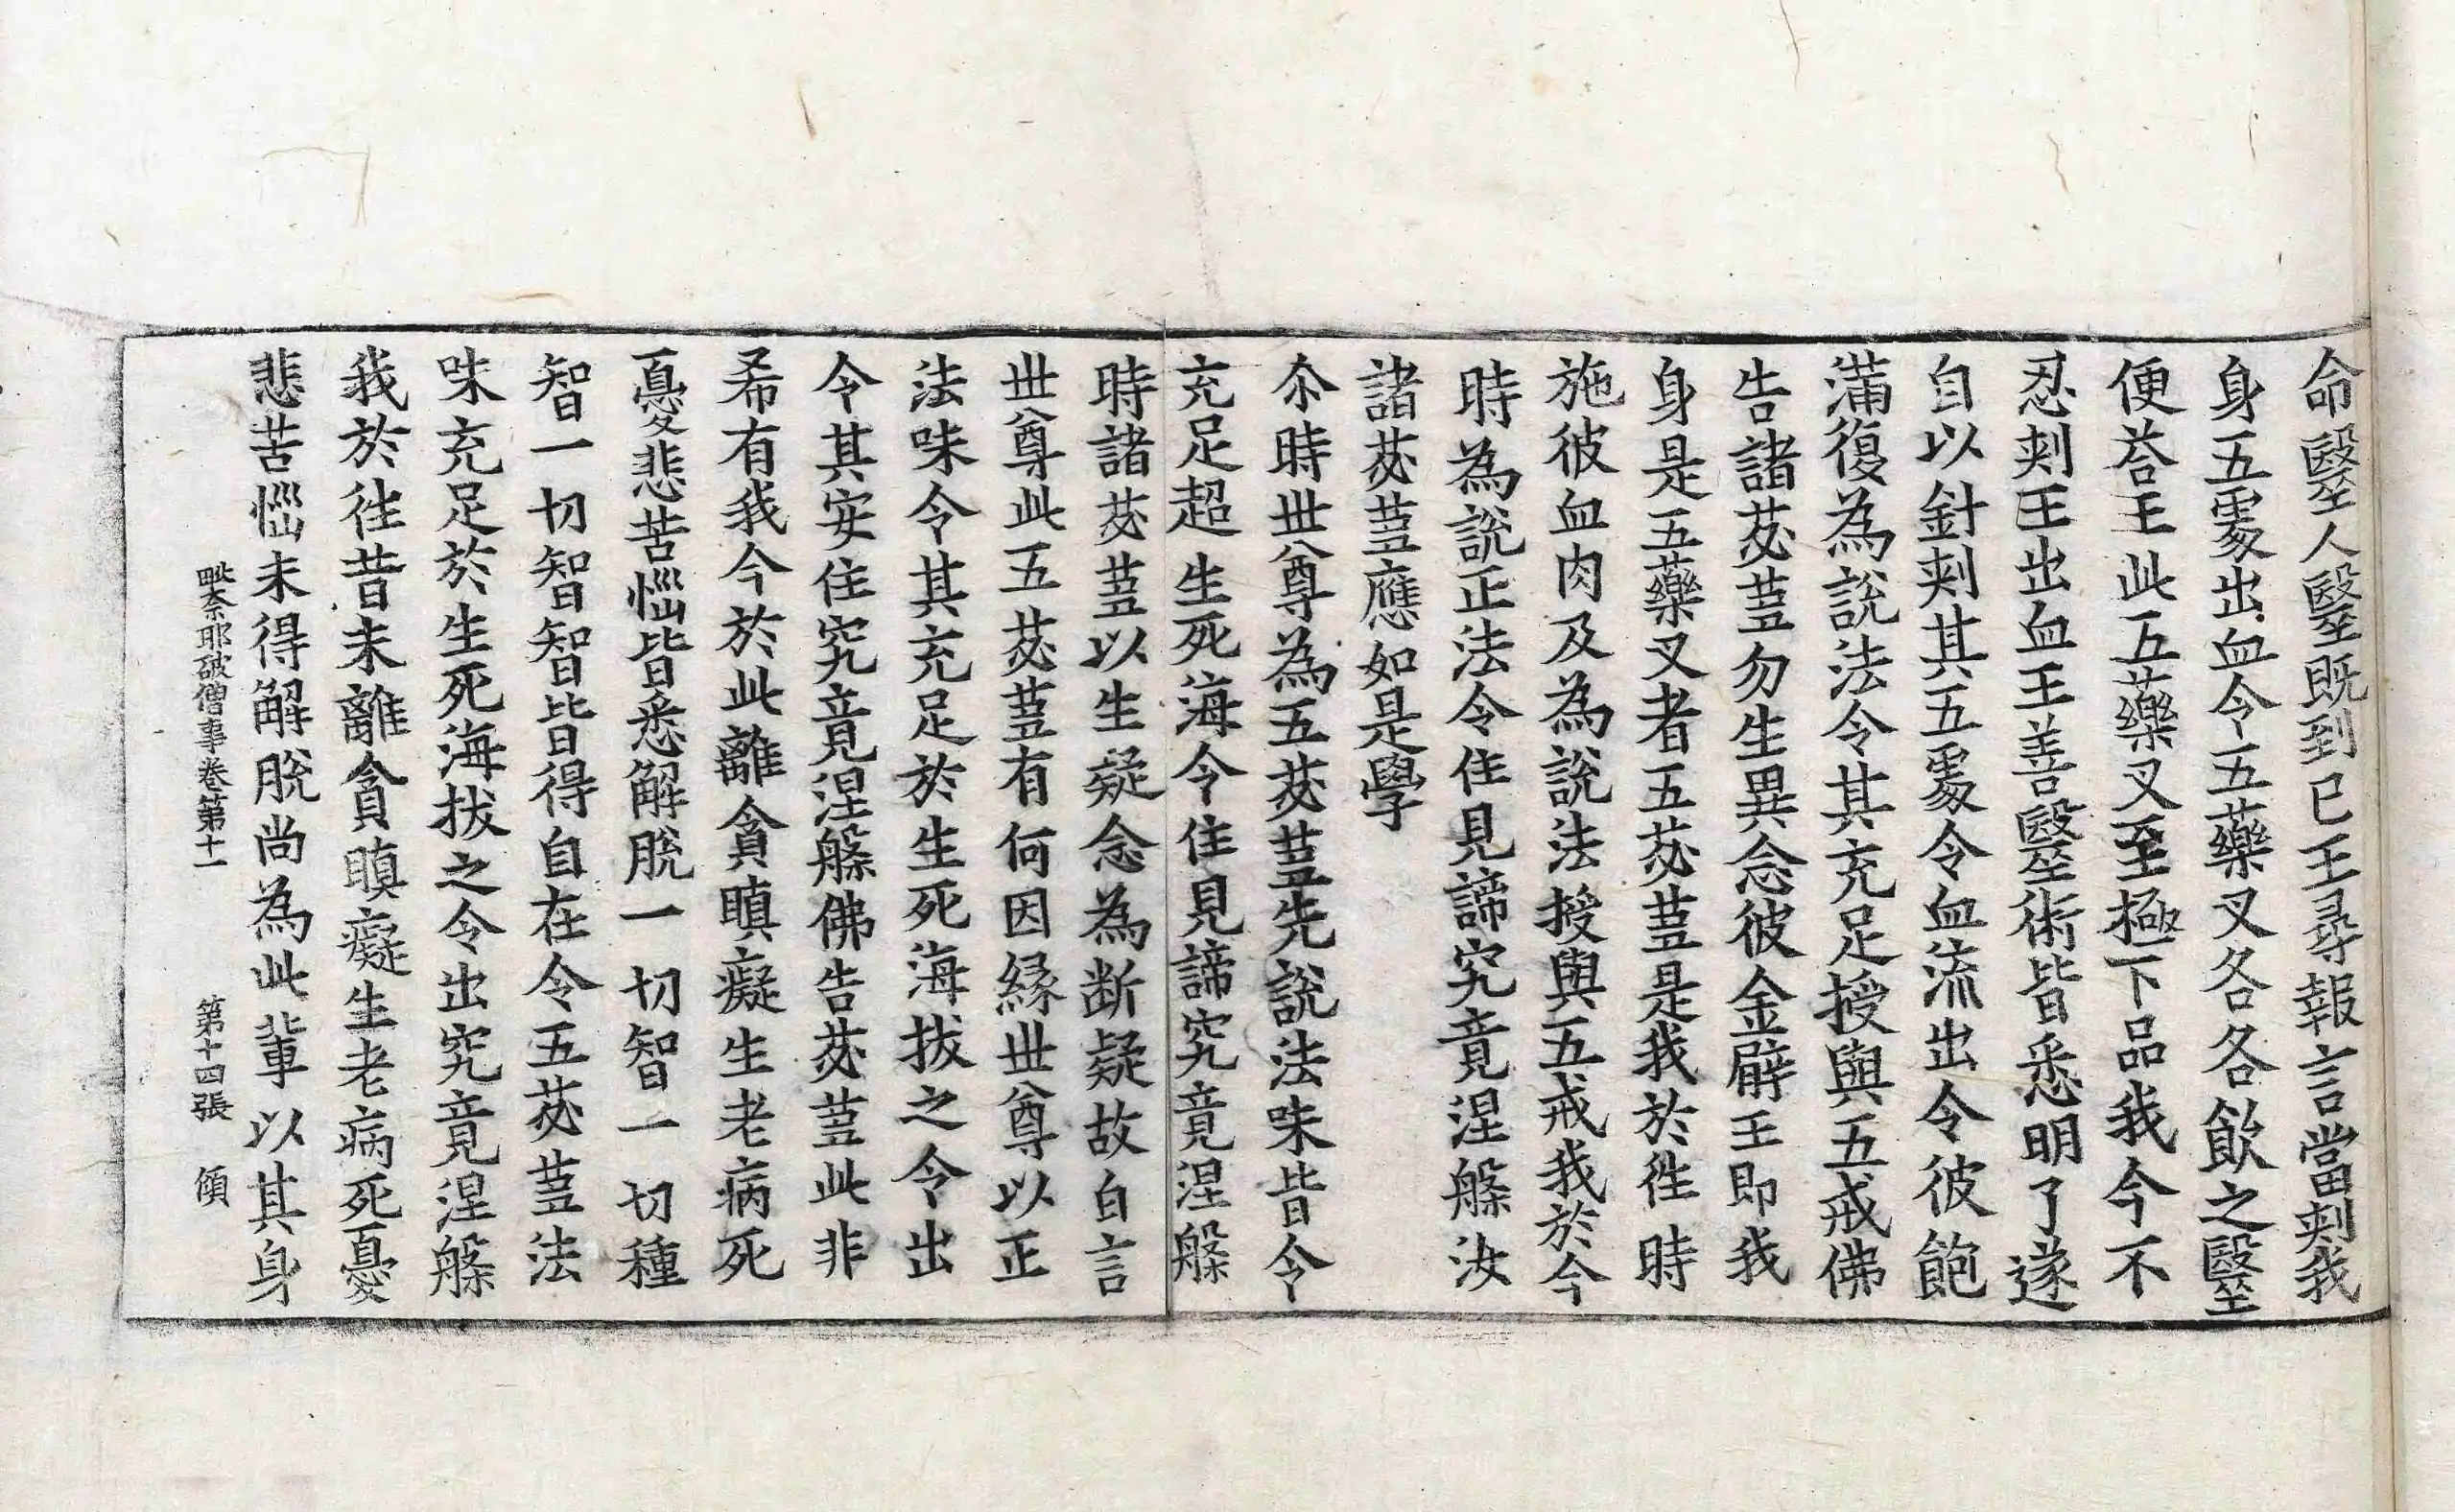 命醫人醫既到已王尋報言當刾我
身五䖏出血令五藥叉各各飮之醫
便荅王此五藥叉至極下品我今不
忍刾王出血王善醫術皆悉明了遂
自以針刾其五䖏令血流出令彼飽
滿復為說法令其充足授與五戒佛
告諸苾蒭勿生異念彼金臂王即我
身是五藥叉者五苾蒭是我於徃時
施彼血肉及為說法授與五戒我於今
時為說正法令住見諦究竟涅槃汝
諸苾蒭應如是學
尒時世尊為五苾蒭先說法味皆令
充足超生死海令住見諦究竟涅槃
時諸苾蒭以生疑念為断疑故白言
世尊此五苾蒭有何因縁世尊以正
法味令其充足於生死海拔之令出
令其安住究竟涅槃佛告苾蒭此非
希有我今於此離貪瞋癡生老病死
憂悲苦惱皆悉解脫一切智一切種
智一切智智皆得自在令五苾蒭法
味充足於生死海拔之令出究竟涅槃
我於徃昔未離貪瞋癡生老病死憂
悲苦惱未得解脫尚為此輩以其身
毗柰耶破僧事卷第十一 第十四張 傾